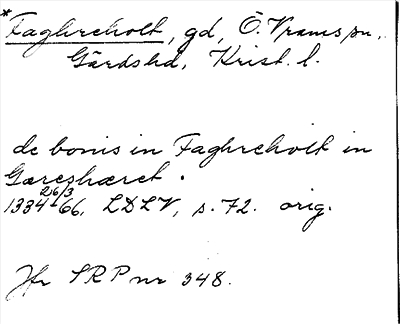 * Faghreholt, gd, Ö. Vrams sn.,
Gärds hd, Krist. l.
de bonis in Faghreholt in
Gæreshæret.
1334 26/3 66, LDLV, s. 72. orig.
Jfr SRP nr 348.